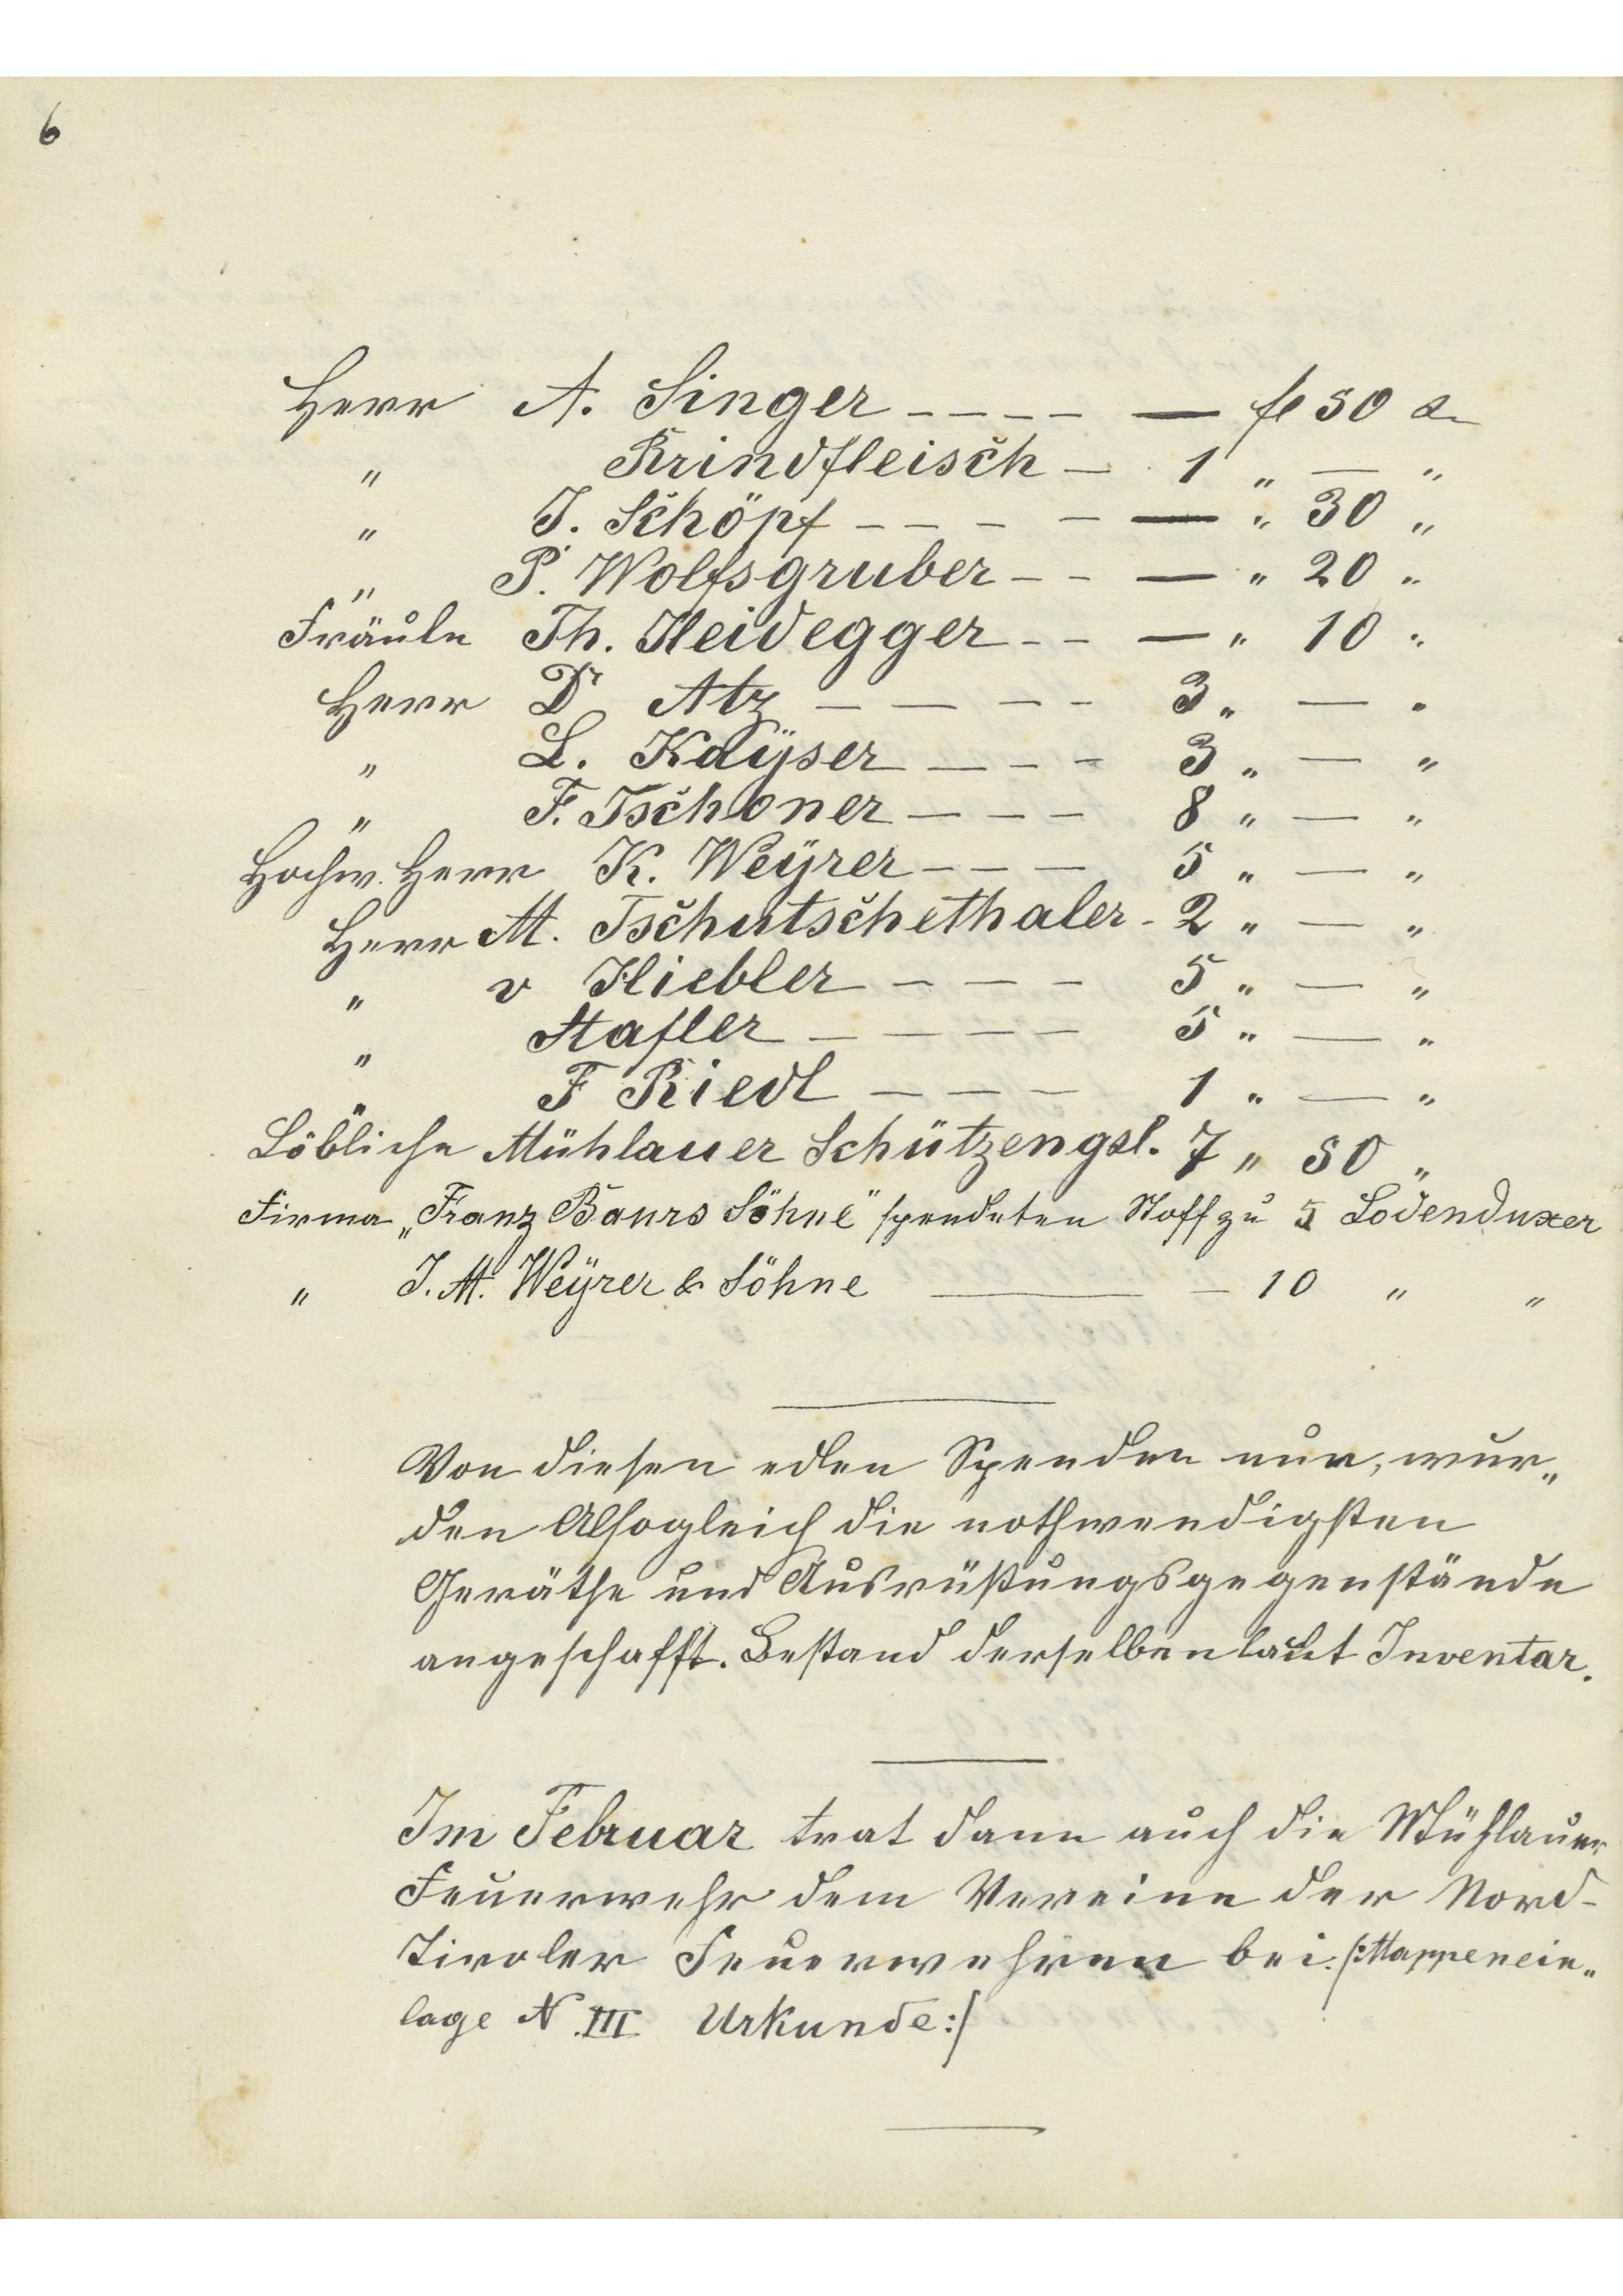 6
Herr A. Singer ---- — fl 50 x
" Krindfleisch — 1 " — "
" J. Schöpf ---- — " 30 "
" P. Wolfsgruber -- — " 20 "
Fräule Th. Heidegger -- — " 10 "
Herr Dr Atz ---- 3 " — "
" L. Kaÿser ---- 3 " — "
" F. Tschoner ---- 8 " — "
Hochw. Herr K. Weÿrer --- 5 " — "
Herr M. Tschutschethaler - 2 " — "
" v Hiebler --- 5 " — "
" Stafler ---- 5 " — "
" F Riedl --- 1 " — "
Löbliche Mühlauer Schützengsl. 7 " 50 "
Firma „Franz Baurs Söhne" spendeten Stoff zu 5 Lodenduxer
" J. M. Weÿrer & Söhne — 10 " "
Von diesen edlen Spenden nun, wur„
den Alsogleich die nothwendigsten
Geräthe und Ausrüßungsgegenstände
angeschafft. Bestand derselben laut Inventar.
Im Februar trat dann auch die Mühlauer
Feuerwehr dem Vereine der Nord-
Tiroler Feuerwehren bei. /:Mappenein„
lage N. III Urkunde:/